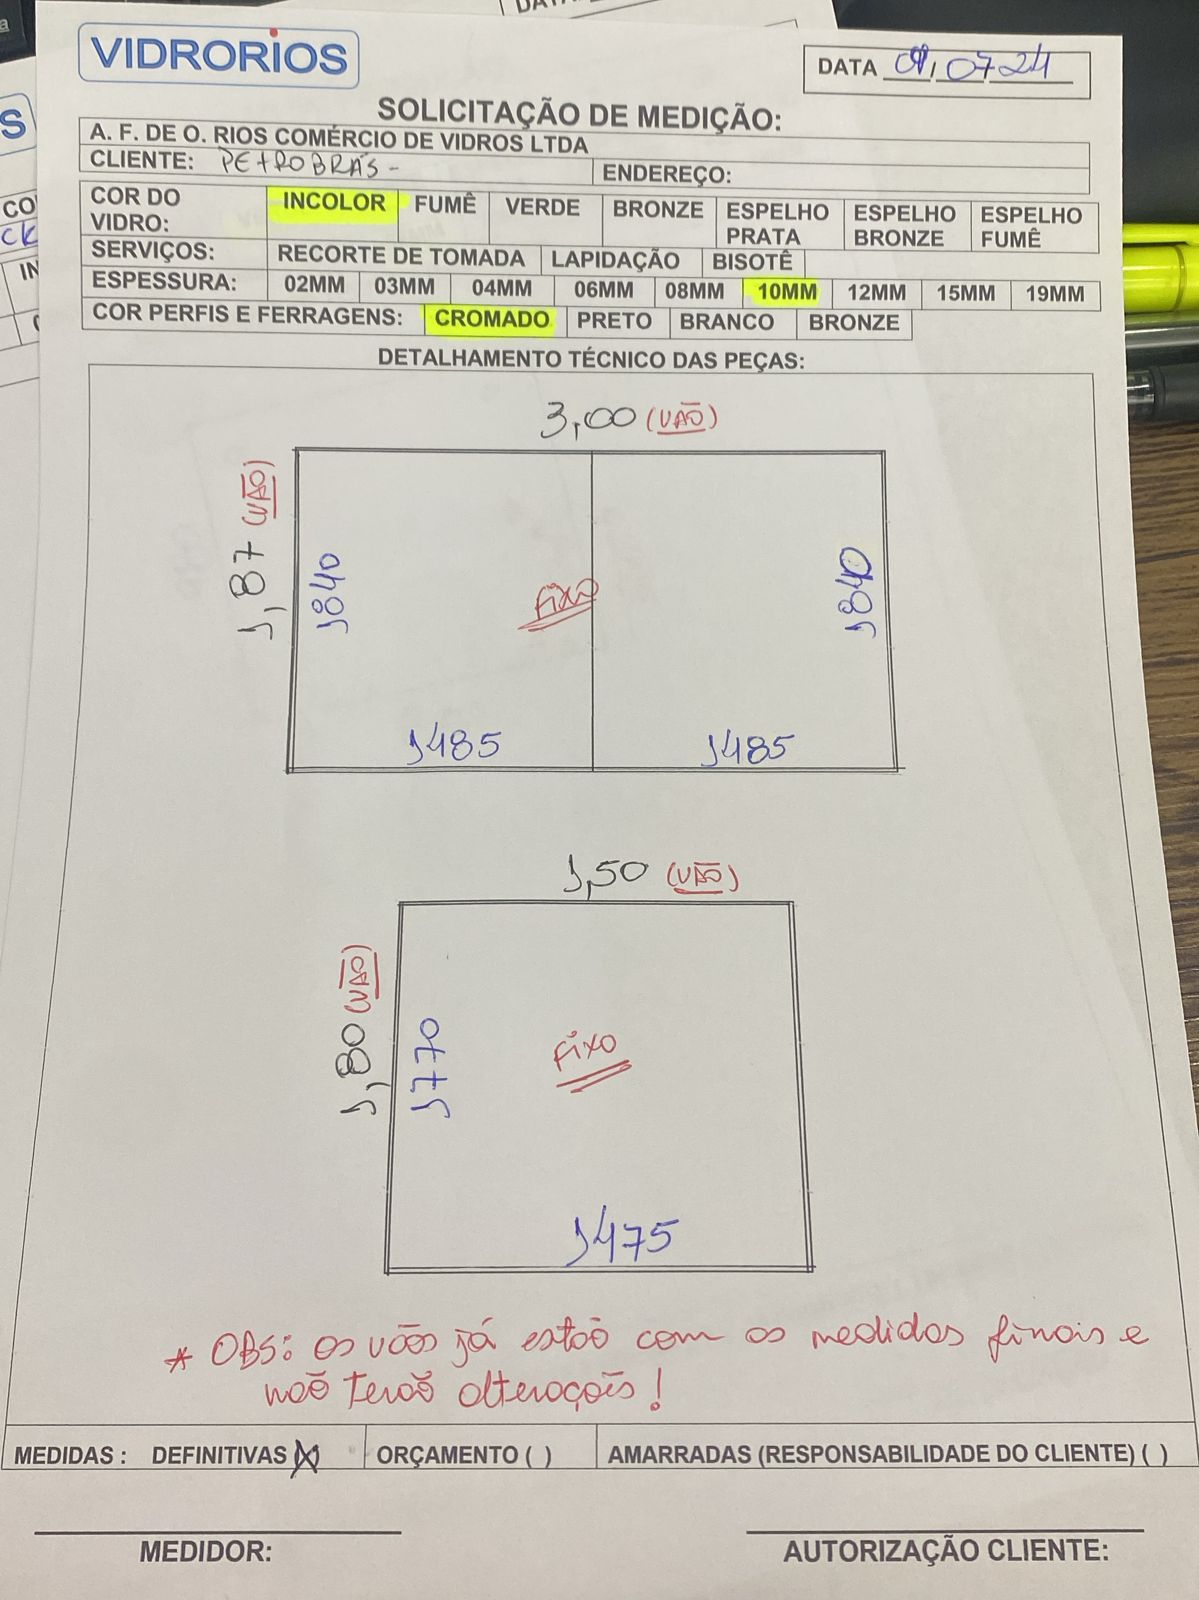 VIDRORIOS
DATA 09/07 24
SOLICITAÇÃO DE MEDIÇÃO:
A. F. DE O. RIOS COMÉRCIO DE VIDROS LTDA
CLIENTE: PETROBRÁS - ENDEREÇO:
COR DO VIDRO: INCOLOR FUMÊ VERDE BRONZE ESPELHO PRATA ESPELHO BRONZE ESPELHO FUMÊ
SERVIÇOS: RECORTE DE TOMADA LAPIDAÇÃO BISOTÊ
ESPESSURA: 02MM 03MM 04MM 06MM 08MM 10MM 12MM 15MM 19MM
COR PERFIS E FERRAGENS: CROMADO PRETO BRANCO BRONZE
DETALHAMENTO TÉCNICO DAS PEÇAS:
3,00 (VÃO)
1,87 (VÃO)
1840
FIXO
1840
1485
1485
1,50 (VÃO)
1,80 (VÃO)
1770
FIXO
1475
* OBS: os vãos já estão com as medidas finais e
não terão alteraçõis!
MEDIDAS : DEFINITIVAS (X) ORÇAMENTO ( ) AMARRADAS (RESPONSABILIDADE DO CLIENTE) ( )
MEDIDOR:
AUTORIZAÇÃO CLIENTE: